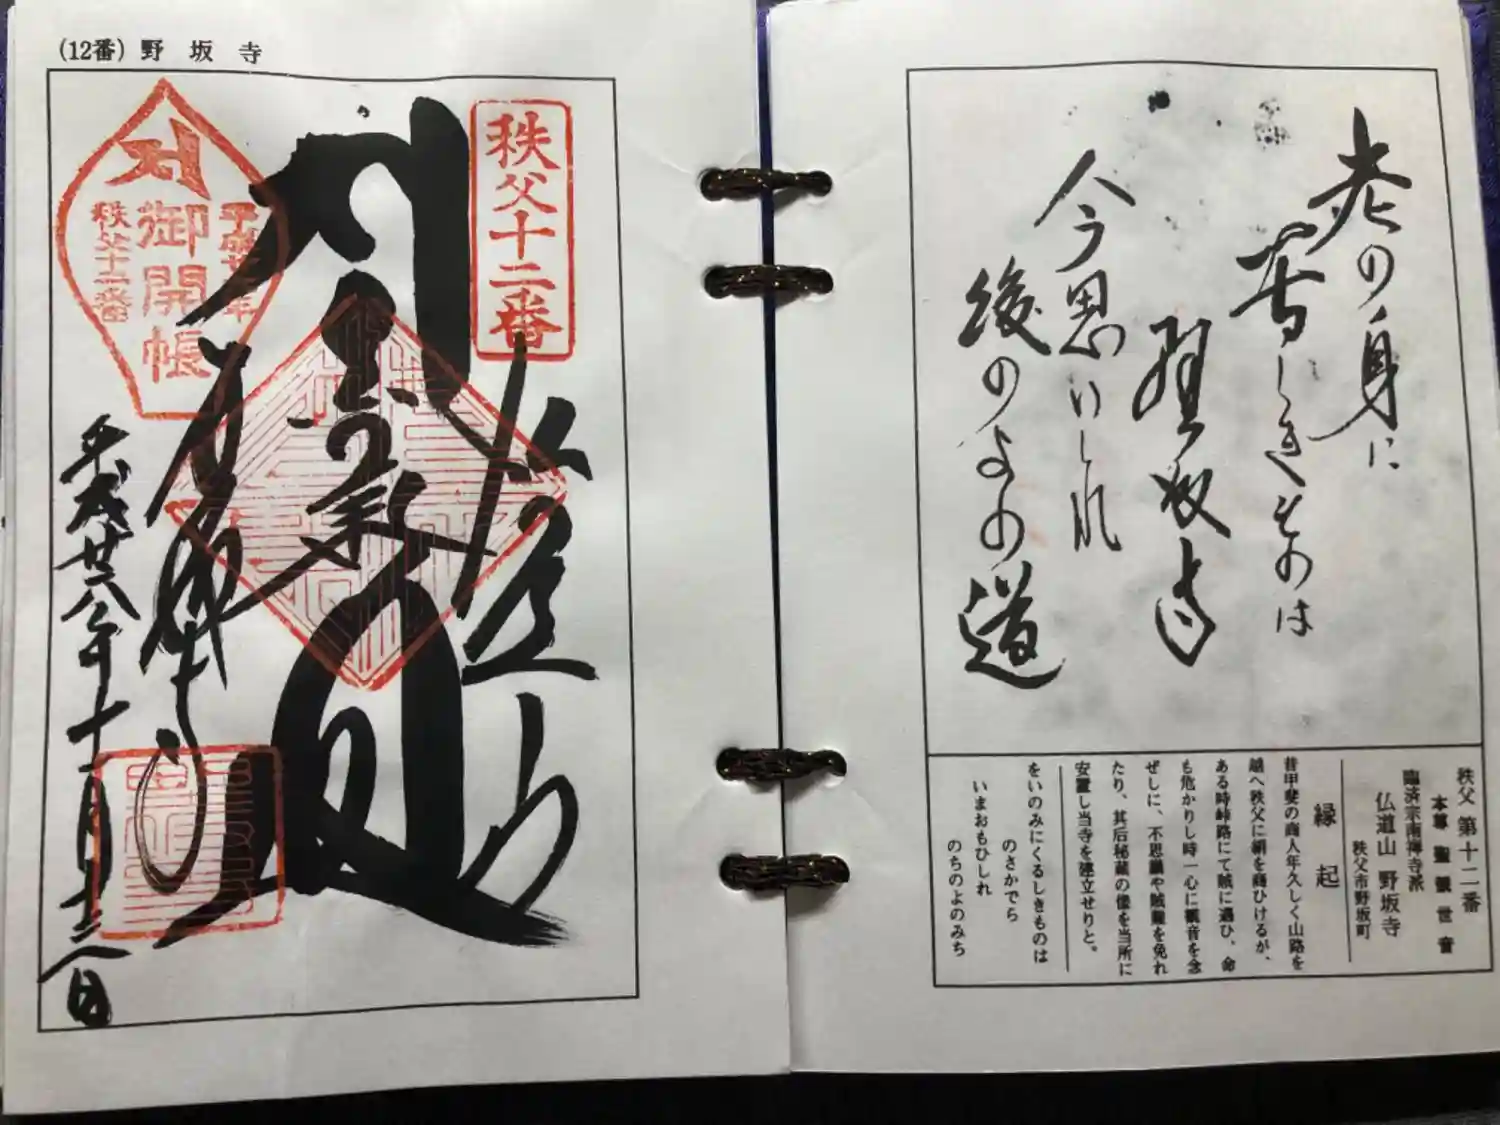 (12番) 野坂寺
秩父十二番
仏道山
御開帳
秩父十二番
平成廿六年十一月十六日
老の身に
苦しきものは
野坂寺
今思いしれ
後のよの道
秩父 第十二番
本尊 聖観世音
臨済宗南禅寺派
仏道山 野坂寺
秩父市野坂町
縁起
昔甲斐の商人年久しく山路を
越へ秩父に絹を商ひけるが、
ある時峠路にて賊に遇ひ、命
も危かりし時一心に観音を念
ぜしに、不思議や賊難を免れ
たり、其后秘蔵の像を当所に
安置し当寺を建立せりと。
をいのみにくるしきものは
のさかでら
いまおもひしれ
のちのよのみち